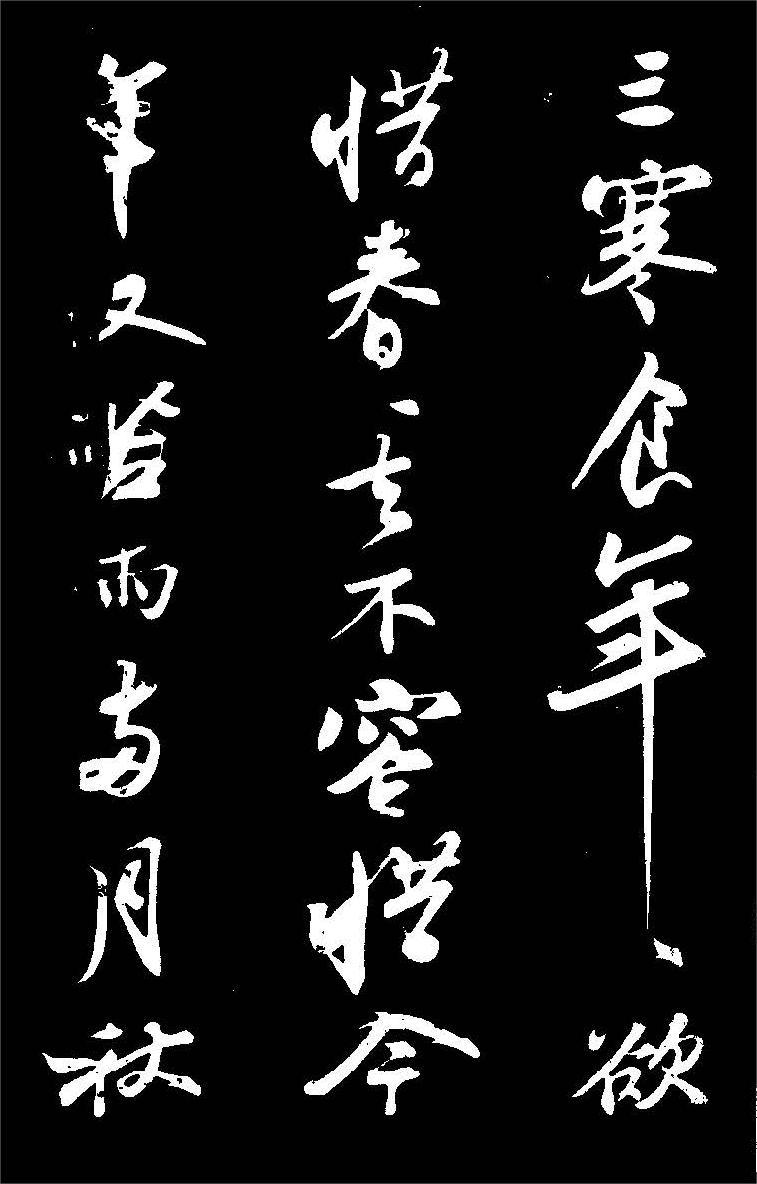 三寒食年〻欲
惜春〻去不容惜今
年又苦雨两月秋